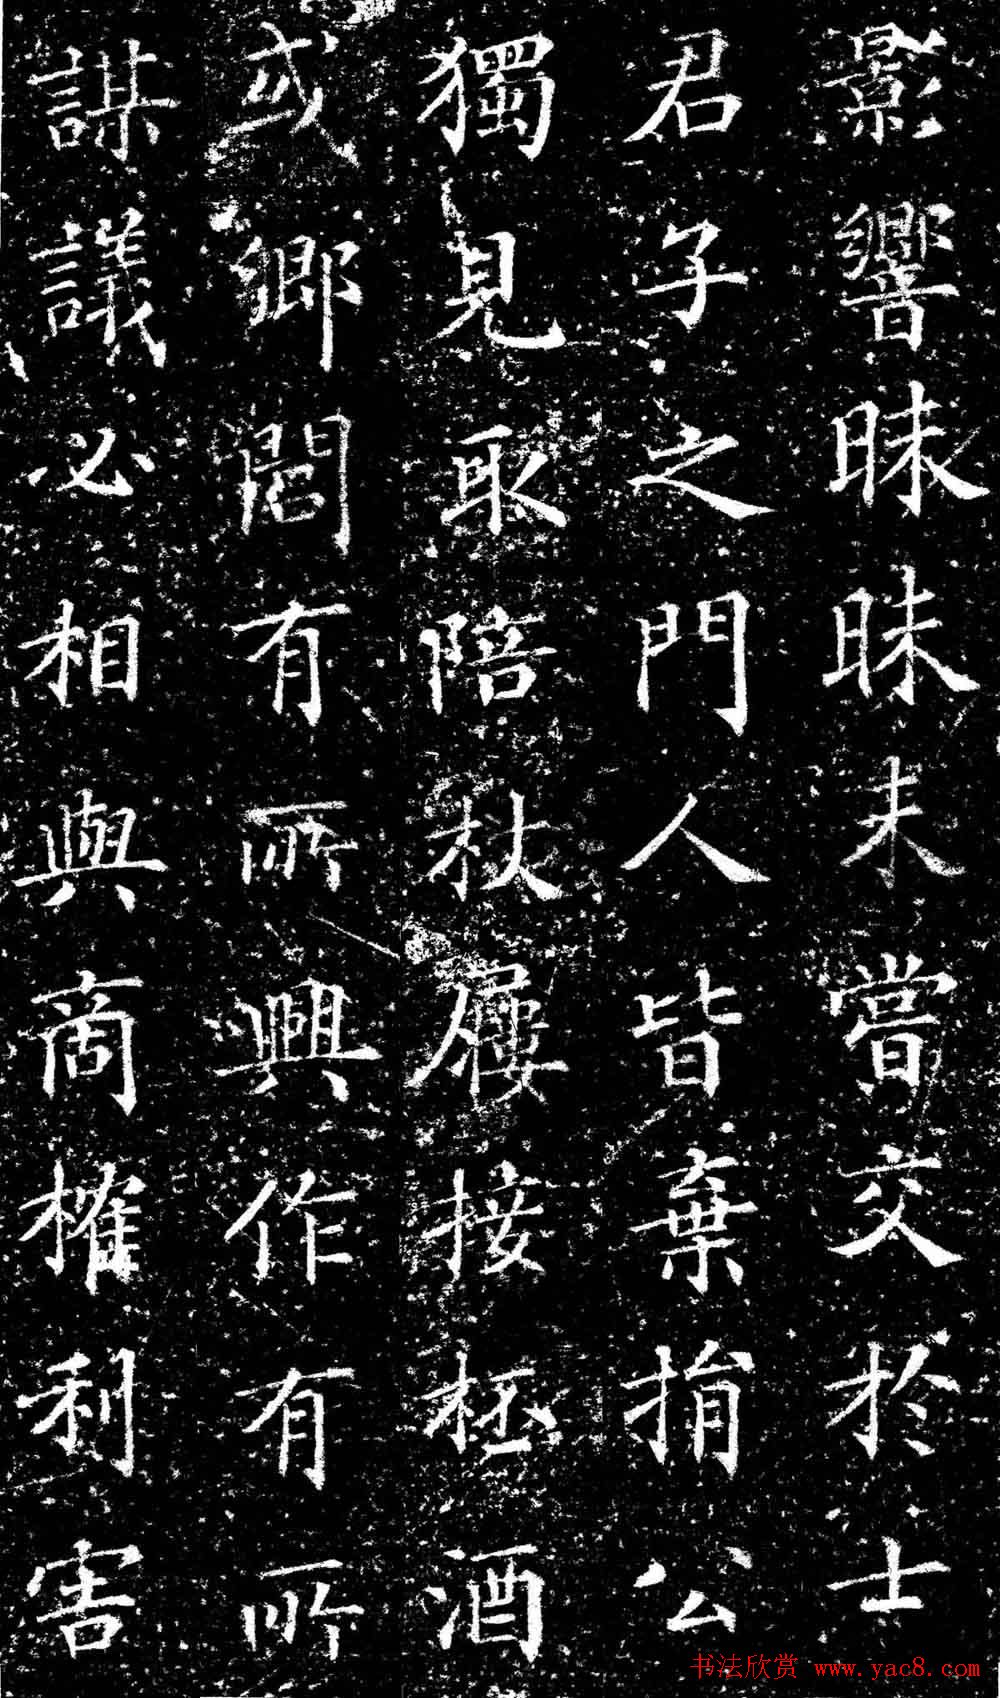 影響昧昧未嘗交於士
君子之門人皆棄捐公
獨見取陪杖屨接杯酒
或鄉閭有所興作有所
謀議必相與商榷利害
书法欣赏 www.yac8.com